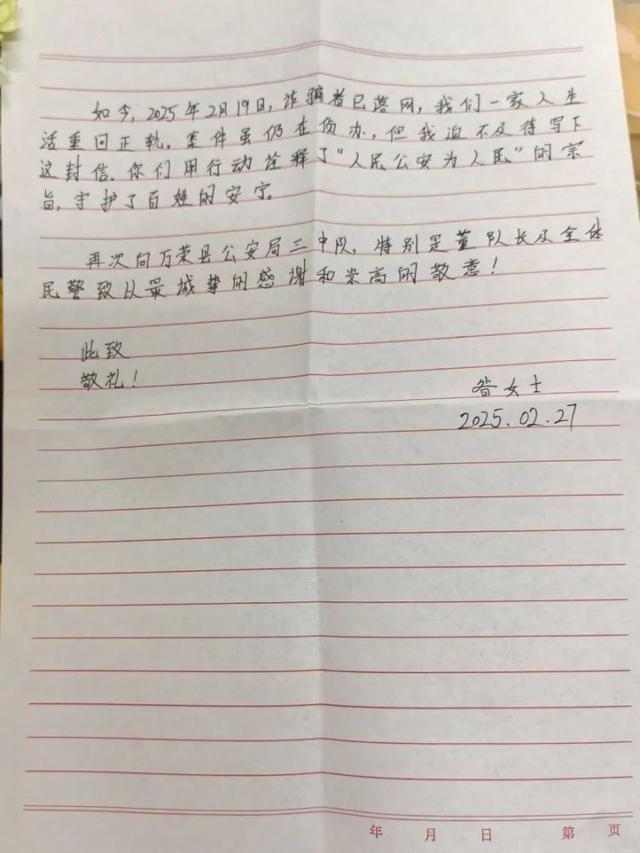 如今，2025年2月19日，诈骗者已落网，我们一家人生
活重回正轨。案件虽仍在侦办，但我迫不及待写下
这封信。你们用行动诠释了“人民公安为人民”的宗
旨，守护了百姓的安宁。
再次向万荣县公安局三中队，特别是董队长及全体
民警致以最诚挚的感谢和崇高的敬意！
此致
敬礼！
昝女士
2025.02.27
年 月 日 第 页